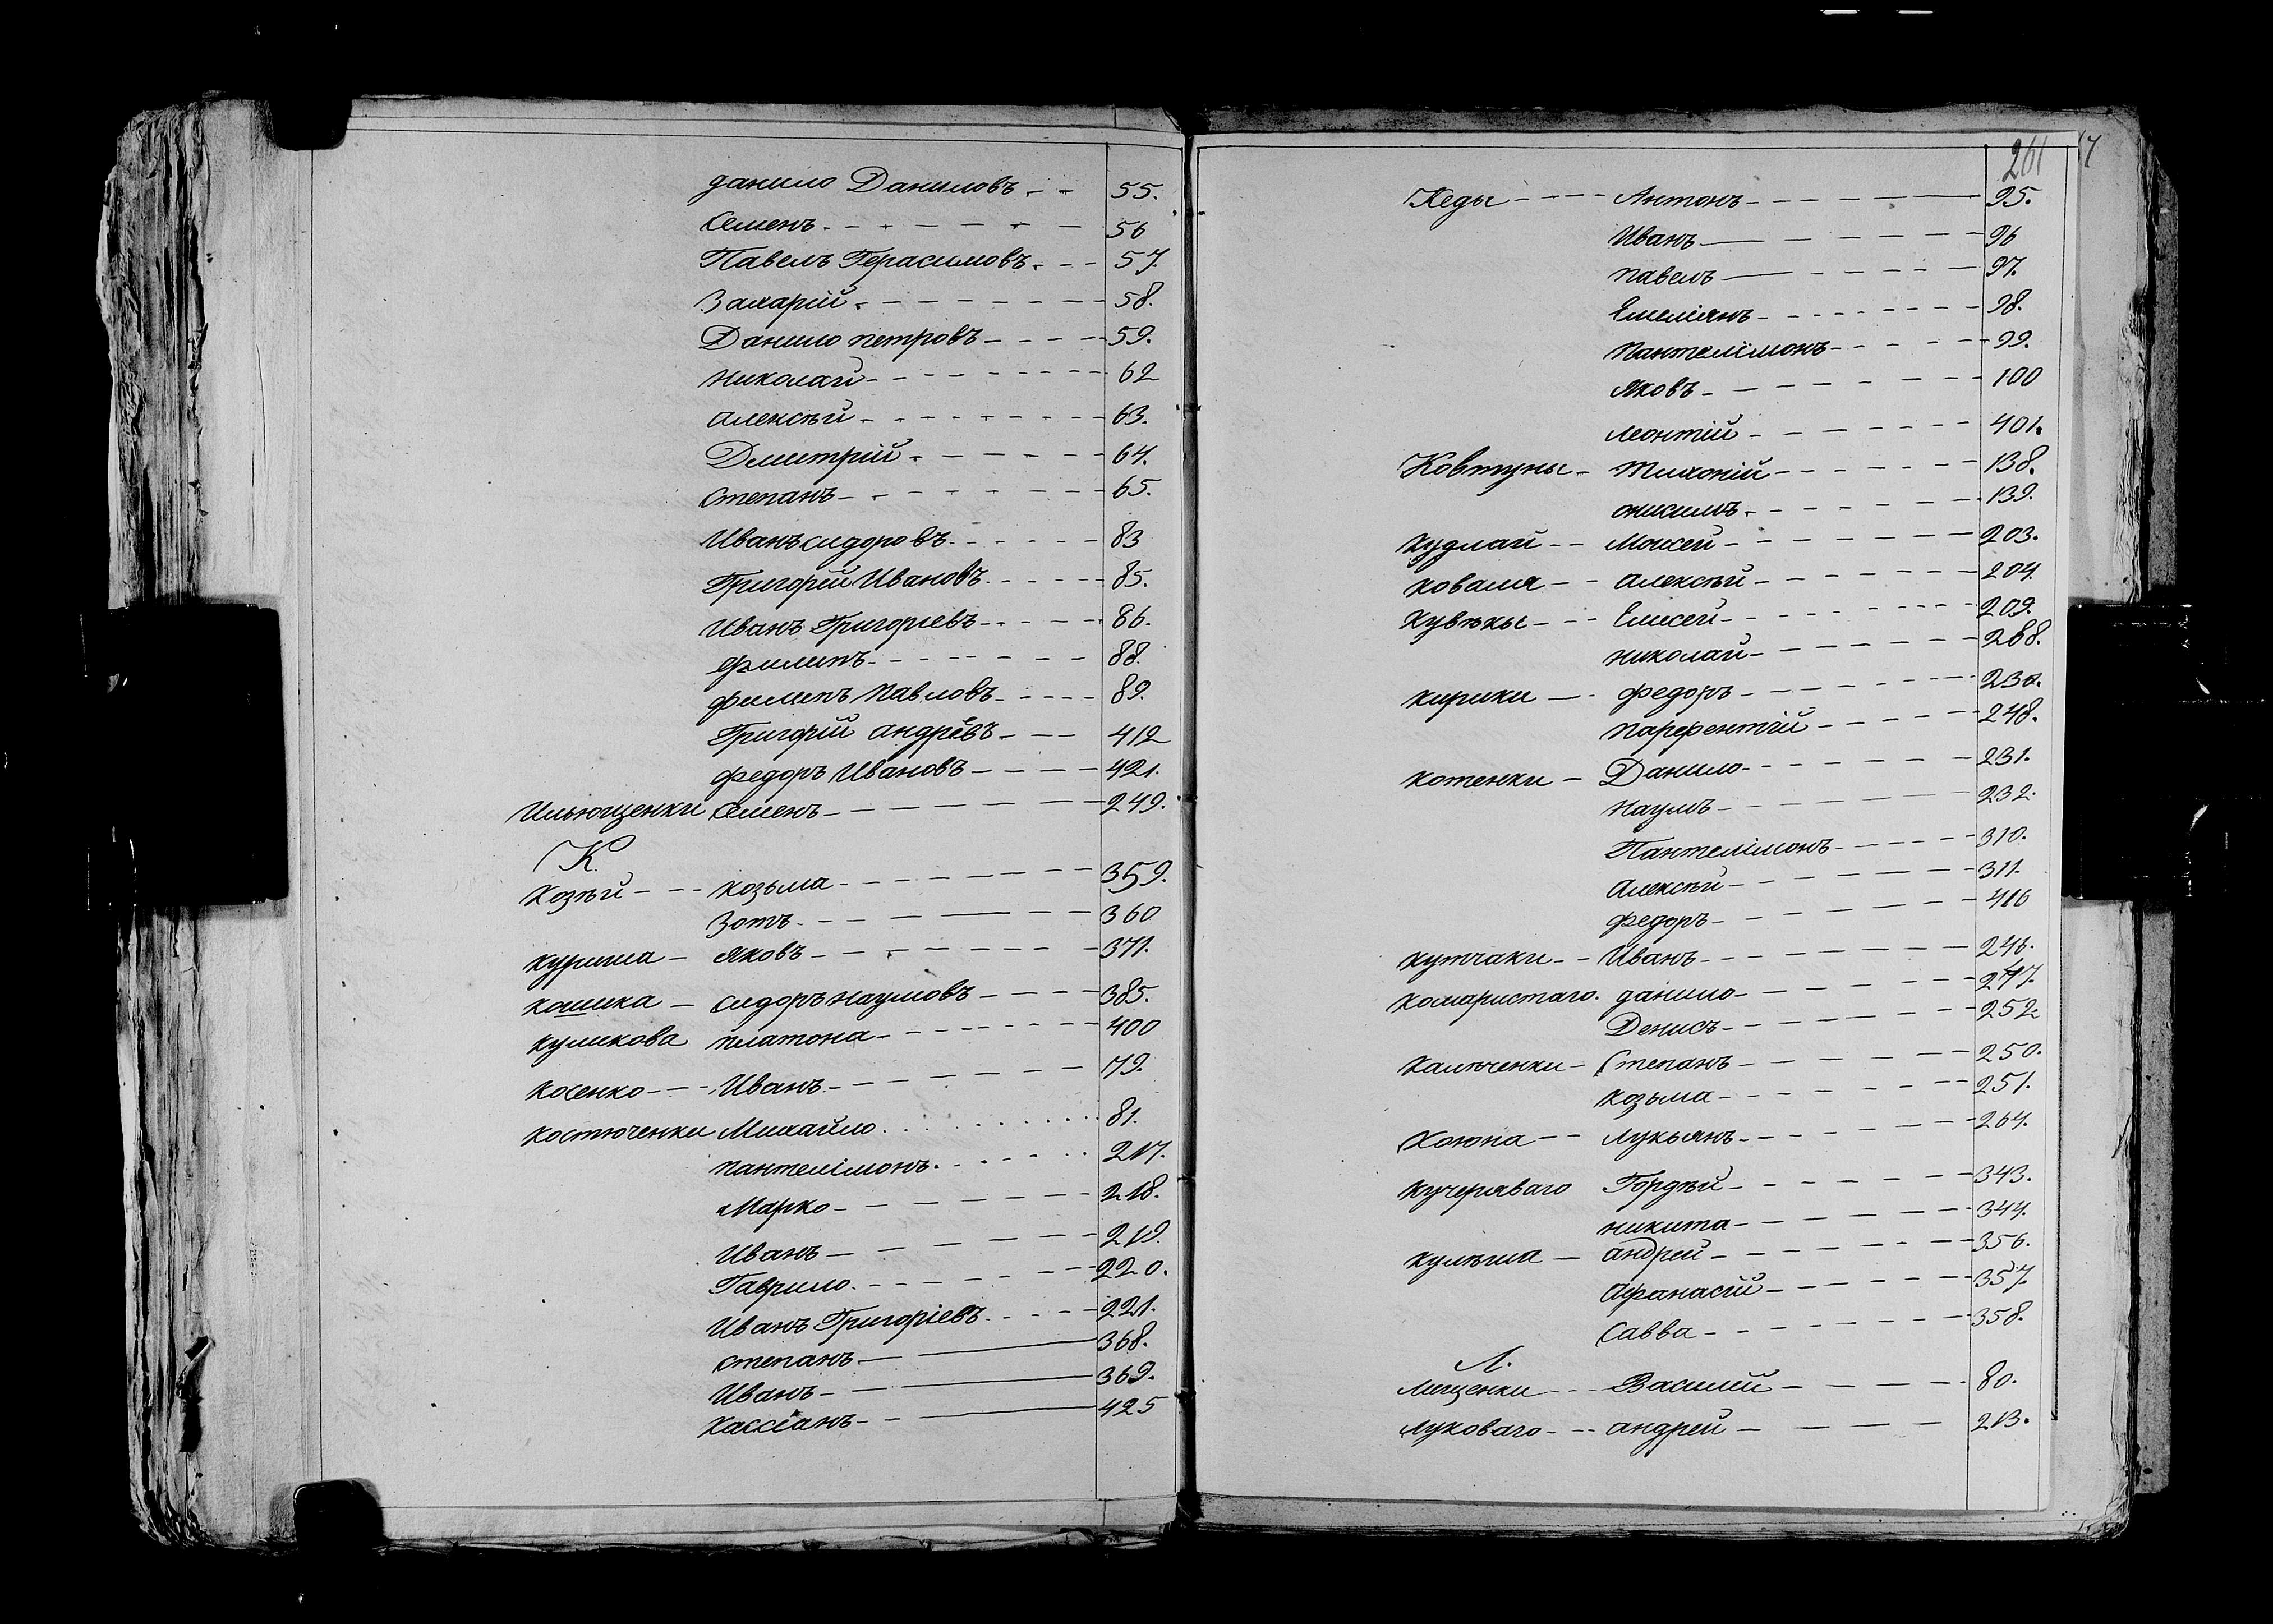 данило Даниловъ - - 55.
Семенъ - - - - - - 56
Павелъ Герасимовъ - - - 57.
Захарій - - - - - - - 58.
Данило петровъ - - - - 59.
николай - - - - - - - - 62
алексѣй - - - - - - - - 63.
Дмитрій - - - - - - 64.
степанъ - - - - - - - 65.
Иванъ сидоровъ - - - - - - 83
Григорій Ивановъ - - - - - 85.
Иванъ Григоріевъ - - - - - 86.
филипъ - - - - - - - 88.
филипъ Павловъ - - - - - 89.
Григорій андрѣевъ - - - 412
федоръ Ивановъ - - - - - 421.
Ильющенки Семенъ - - - - - - - 249.
К.
Козѣй - - - козьма - - - - - - - - 359.
Зотъ - - - - - - - 360
куриша - яковъ - - - - - - - 371.
кошика - сидоръ наумовъ - - - - 385.
куликова платона - - - - - - - - 400
косенко - - - Иванъ - - - - - - - 79.
костюченки Михайло . . . . . . . . . . 81.
пантелімонъ - - - - - - 217.
Марко - - - - - - - 218.
Иванъ - - - - - - - 219.
Гаврило - - - - - - - 220.
Иванъ Григоріевъ - - - - 221.
степанъ - - 368.
Иванъ - - 369.
кассіанъ - - 425
201
Кеды - - - - Антонъ - - - - - - 95.
Иванъ - - - - - - 96
павелъ - - - - - - 97.
Емеліянъ - - - - - - - - 98.
пантелімонъ - - - - - 99.
яковъ - - - - - - - 100
леонтій - - - - - - - 401.
Ковтуны - Тихоній - - - - - - - 138.
онисимъ - - - - - - - 139.
кудлай - - Моисей - - - - - - - 203.
коваля - - алексѣй - - - - - - - 204.
Елисей - - - - - - - - 209.
николай - - - - - - - 268.
кирики - - федоръ - - - - - - - 230.
парфентій - - - - - - 248.
котенки - Данило - - - - - - - 231.
наумъ - - - - - - - 232.
Пантелімонъ - - - - - - 310.
Алексѣй - - - - - - - 311.
федоръ - - - - - - - 416
кутчаки - - Иванъ - - - - - - - 246.
комаристаго. данило - - - - - - - 247.
Денисъ - - - - - - - 252.
Степанъ - - - - - - - 250.
козьма - - - - - - - 251.
Коюпа - - лукьянъ - - - - - - - 264.
кучеряваго Гордѣй - - - - - - - 343.
никита - - - - - - - 344.
андрей - - - - - - - 356.
Афанасій - - - - - - - 357.
Савва - - - - - - - 358.
Л.
лищенки - - - Василій - - - - - 80.
луковаго - - - андрей - - - - 213.